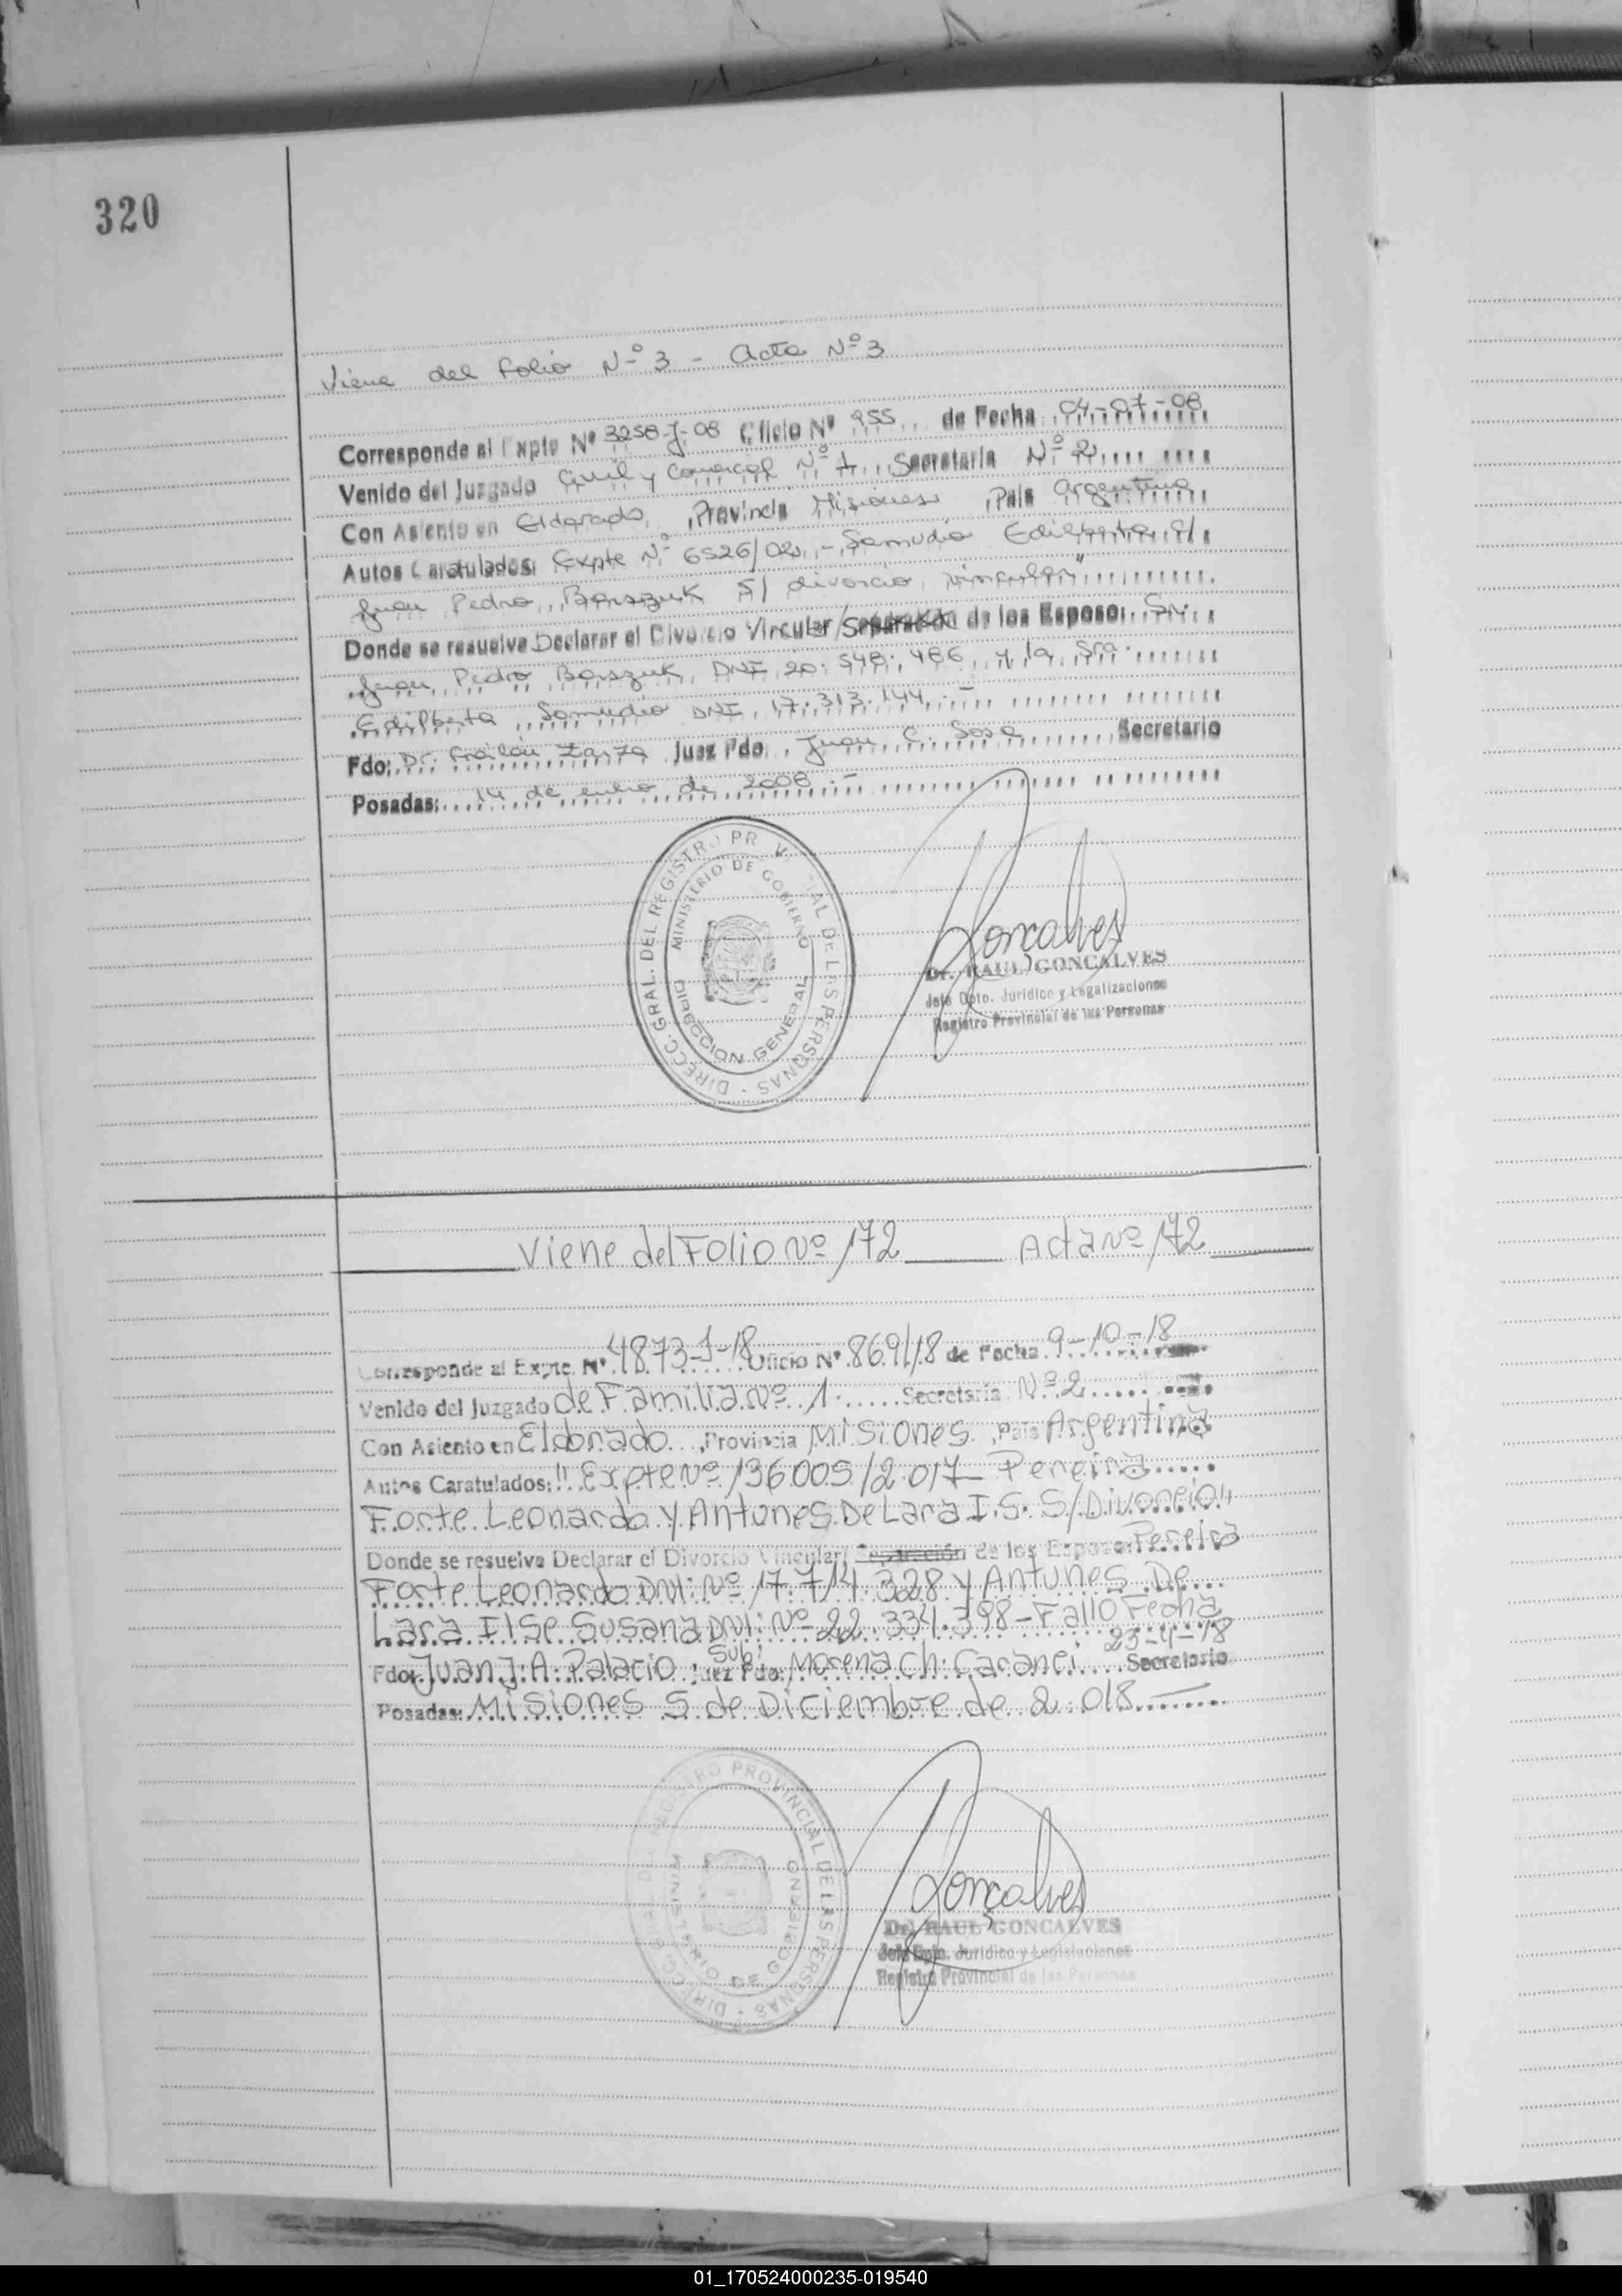 320
Viene del folio Nº 3 - Acta Nº 3
Corresponde al Expte Nº 3258-J-08 Oficio Nº 955 de Fecha 04-07-08
Venido del Juzgado Civil y Comercial Nº 1 Secretaría Nº 2
Con Asiento en Eldorado, Provincia Misiones, País Argentina
Autos Caratulados: Expte Nº 6526/02 - Samudio Edilberta c/
Juan Pedro Barszuk S/ divorcio vincular"
Donde se resuelve Declarar el Divorcio Vincular/Separación de los Esposo: Sr.
Juan Pedro Barszuk, DNI 20.548.486 y la Sra.
Edilberta Samudio DNI 17.313.144.-
Fdo: Dr. Froilán Zarza Juez Fdo. Juan C. Sosa Secretario
Posadas: 14 de de 2008.-
DIRECC. GRAL. DEL REGISTRO PROVINCIAL DE LAS PERSONAS
MINISTERIO DE GOBIERNO
DIRECCION GENERAL
Goncalves
Dr. RAUL GONCALVES
Jefe Dpto. Jurídico y Legalizaciones
Registro Provincial de las Personas
Viene del Folio Nº 172 Acta Nº 172
Corresponde al Expte. Nº 4873-J-18 Oficio Nº 869/18 de Fecha 9-10-18
Venido del Juzgado de Familia Nº 1 Secretaría Nº 2
Con Asiento en Eldorado, Provincia Misiones, País Argentina
Autos Caratulados: "Expte Nº 136005/2.017 - Pereira
Forte Leonardo y Antunes De Lara I.S. S/Divorcio"
Donde se resuelve Declarar el Divorcio Vincular/Separación de los Esposo: Pereira
Forte Leonardo DNI: Nº 17.714.328 y Antunes De
Lara Ilse Susana DNI: Nº 22.334.398 - Fallo Fecha
23-4-18
Fdo: Juan J. A. Palacio Sub: Juez Fdo: Morena Ch. Secretario
Posadas: Misiones 5 de Diciembre de 2.018
DIRECC. GRAL. DEL REGISTRO PROVINCIAL DE LAS PERSONAS
MINISTERIO DE GOBIERNO
Gonçalves
Dr. RAUL GONCALVES
Jefe Dpto. Jurídico y Legislaciones
Registro Provincial de las Personas
01_170524000235-019540